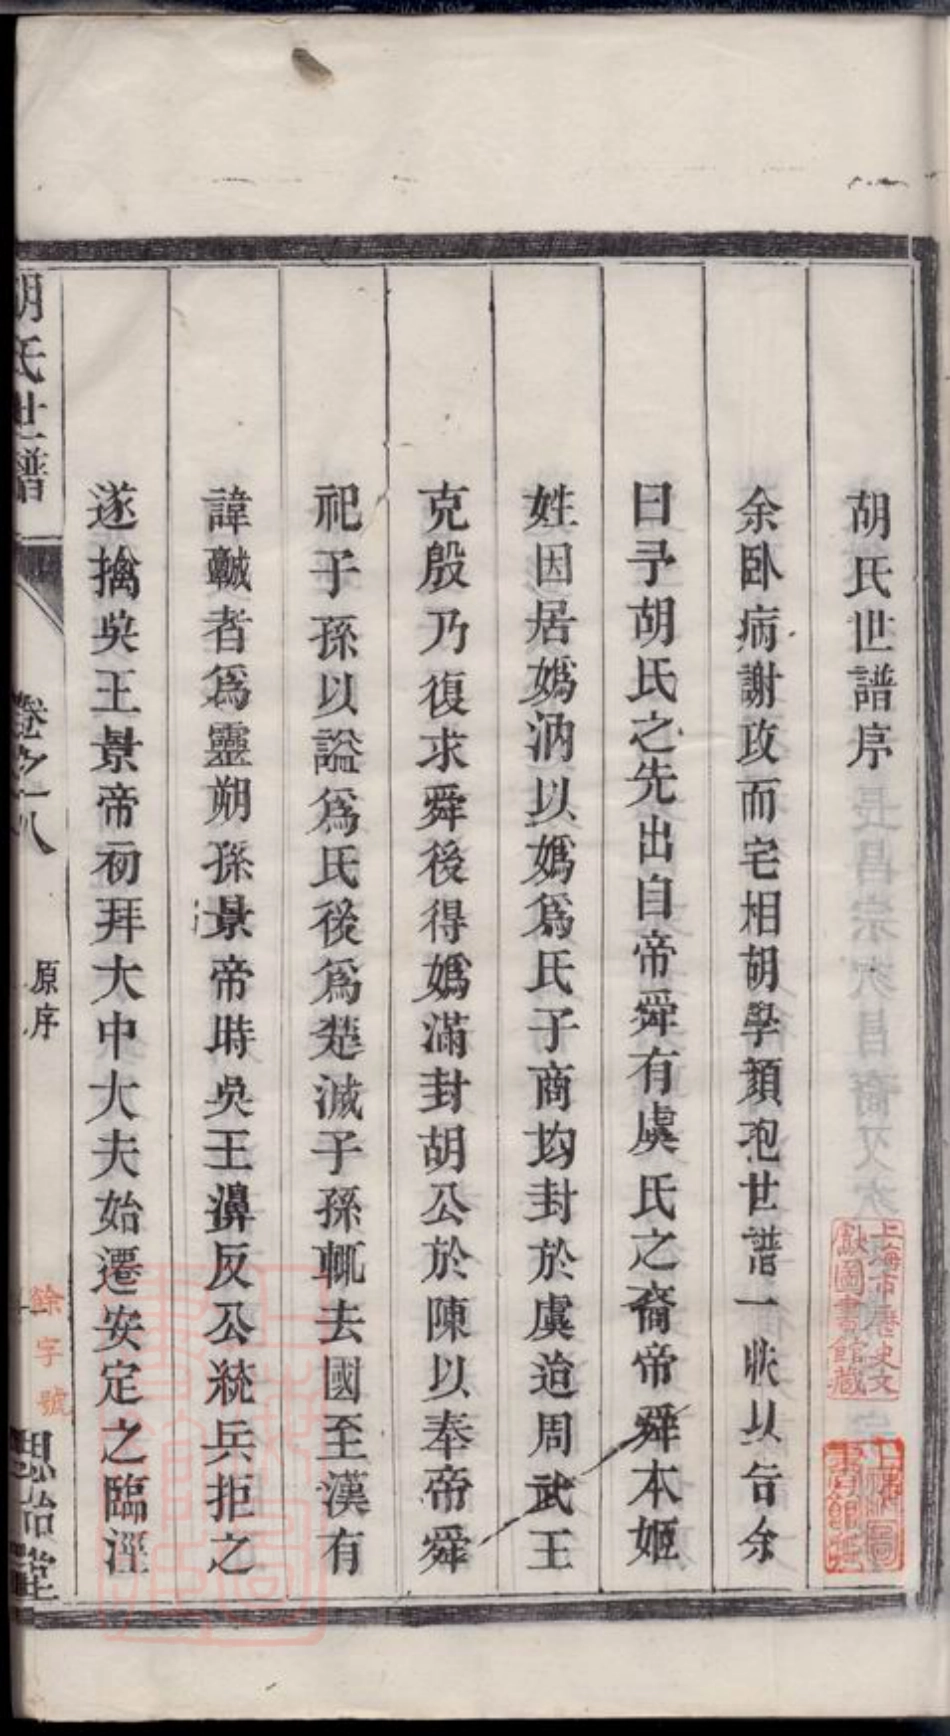 胡氏世譜序
余臥病謝政而宅相胡學顏抱世譜一帙以告余
曰予胡氏之先出自帝舜有虞氏之裔帝舜本姬
姓因居媯汭以媯爲氏子商均封於虞迨周武王
克殷乃復求舜後得媯滿封胡公於陳以奉帝舜
祀子孫以謚爲氏後爲楚滅子孫輒去國至漢有
諱虩者爲靈朔孫景帝時吳王濞反公統兵拒之
遂擒吳王景帝初拜大中大夫始遷安定之臨涇
胡氏世譜
卷之八
原序
餘字號
思詒堂
上海市歷史文獻圖書館藏